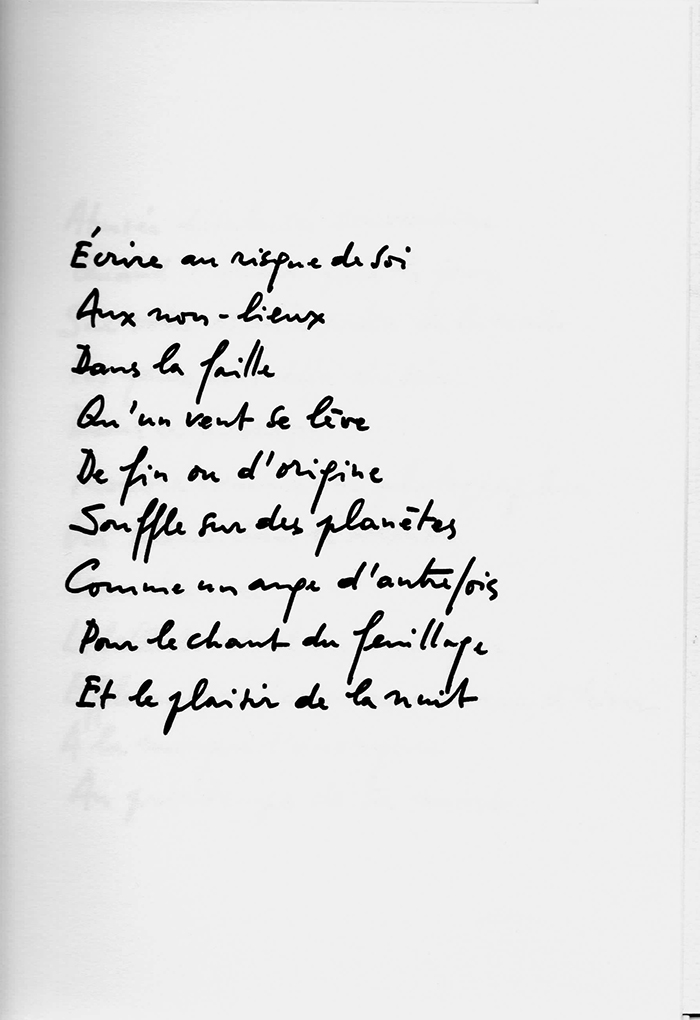 Écrire au risque de soi
Aux non-lieux
Dans la faille
Qu'un vent se lève
De fin ou d'origine
Souffle sur des planètes
Comme un ange d'autrefois
Pour le chant du feuillage
Et le plaisir de la nuit